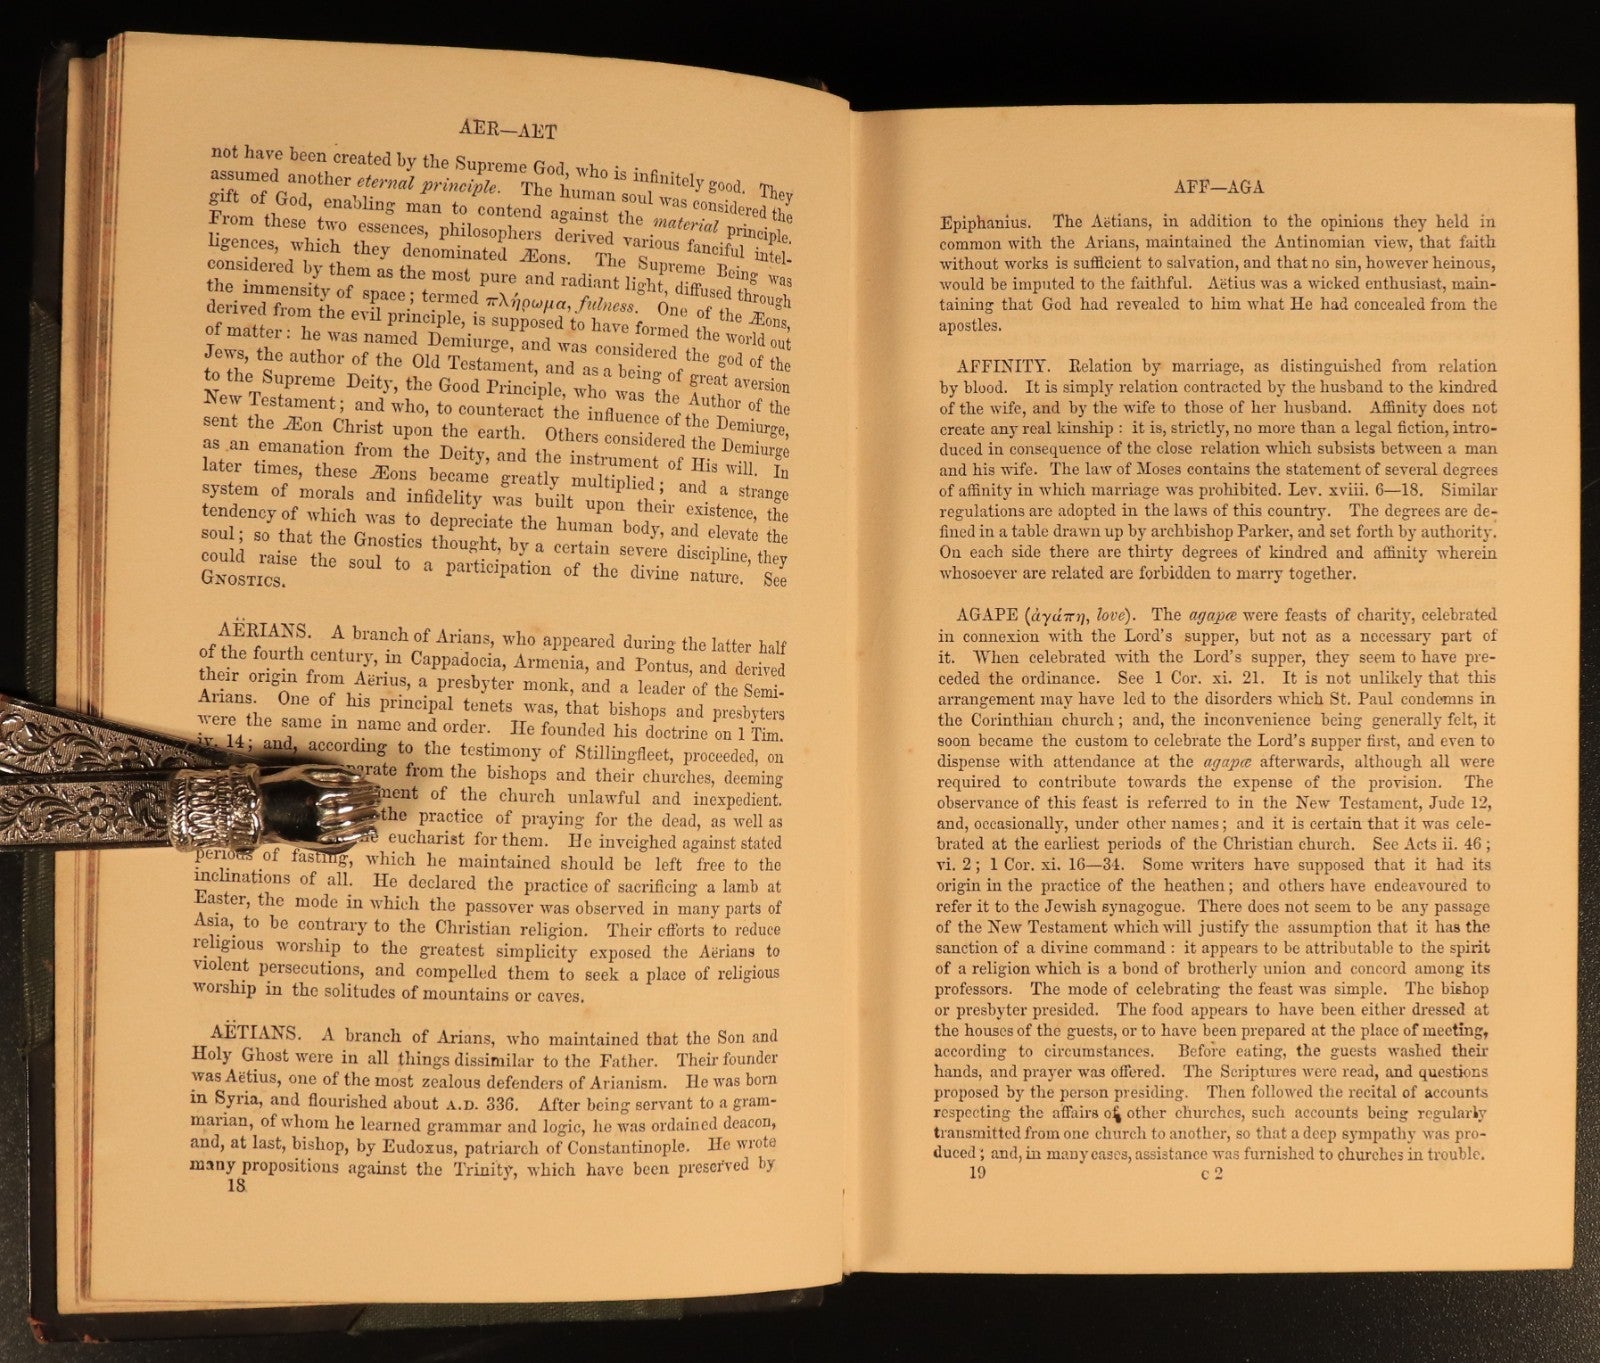 AER—AET
not have been created by the Supreme God, who is infinitely good. They
assumed another eternal principle. The human soul was considered the
gift of God, enabling man to contend against the material principle.
From these two essences, philosophers derived various fanciful intel-
ligences, which they denominated Æons. The Supreme Being was
considered by them as the most pure and radiant light, diffused through
the immensity of space; termed πλήρωμα, fulness. One of the Æons,
derived from the evil principle, is supposed to have formed the world out
of matter: he was named Demiurge, and was considered the god of the
Jews, the author of the Old Testament, and as a being of great aversion
to the Supreme Deity, the Good Principle, who was the Author of the
New Testament; and who, to counteract the influence of the Demiurge,
sent the Æon Christ upon the earth. Others considered the Demiurge
as an emanation from the Deity, and the instrument of His will. In
later times, these Æons became greatly multiplied; and a strange
system of morals and infidelity was built upon their existence, the
tendency of which was to depreciate the human body, and elevate the
soul; so that the Gnostics thought, by a certain severe discipline, they
could raise the soul to a participation of the divine nature. See
GNOSTICS.
AËRIANS. A branch of Arians, who appeared during the latter half
of the fourth century, in Cappadocia, Armenia, and Pontus, and derived
their origin from Aërius, a presbyter monk, and a leader of the Semi-
Arians. One of his principal tenets was, that bishops and presbyters
were the same in name and order. He founded his doctrine on 1 Tim.
iv. 14; and, according to the testimony of Stillingfleet, proceeded, on
from the bishops and their churches, deeming
of the church unlawful and inexpedient.
the practice of praying for the dead, as well as
eucharist for them. He inveighed against stated
periods of fasting, which he maintained should be left free to the
inclinations of all. He declared the practice of sacrificing a lamb at
Easter, the mode in which the passover was observed in many parts of
Asia, to be contrary to the Christian religion. Their efforts to reduce
religious worship to the greatest simplicity exposed the Aërians to
violent persecutions, and compelled them to seek a place of religious
worship in the solitudes of mountains or caves.
AËTIANS. A branch of Arians, who maintained that the Son and
Holy Ghost were in all things dissimilar to the Father. Their founder
was Aëtius, one of the most zealous defenders of Arianism. He was born
in Syria, and flourished about A.D. 336. After being servant to a gram-
marian, of whom he learned grammar and logic, he was ordained deacon,
and, at last, bishop, by Eudoxus, patriarch of Constantinople. He wrote
many propositions against the Trinity, which have been preserved by
18
AFF—AGA
Epiphanius. The Aëtians, in addition to the opinions they held in
common with the Arians, maintained the Antinomian view, that faith
without works is sufficient to salvation, and that no sin, however heinous,
would be imputed to the faithful. Aëtius was a wicked enthusiast, main-
taining that God had revealed to him what He had concealed from the
apostles.
AFFINITY. Relation by marriage, as distinguished from relation
by blood. It is simply relation contracted by the husband to the kindred
of the wife, and by the wife to those of her husband. Affinity does not
create any real kinship: it is, strictly, no more than a legal fiction, intro-
duced in consequence of the close relation which subsists between a man
and his wife. The law of Moses contains the statement of several degrees
of affinity in which marriage was prohibited. Lev. xviii. 6—18. Similar
regulations are adopted in the laws of this country. The degrees are de-
fined in a table drawn up by archbishop Parker, and set forth by authority.
On each side there are thirty degrees of kindred and affinity wherein
whosoever are related are forbidden to marry together.
AGAPE (ἀγάπη, love). The agapæ were feasts of charity, celebrated
in connexion with the Lord's supper, but not as a necessary part of
it. When celebrated with the Lord's supper, they seem to have pre-
ceded the ordinance. See 1 Cor. xi. 21. It is not unlikely that this
arrangement may have led to the disorders which St. Paul condemns in
the Corinthian church; and, the inconvenience being generally felt, it
soon became the custom to celebrate the Lord's supper first, and even to
dispense with attendance at the agapæ afterwards, although all were
required to contribute towards the expense of the provision. The
observance of this feast is referred to in the New Testament, Jude 12,
and, occasionally, under other names; and it is certain that it was cele-
brated at the earliest periods of the Christian church. See Acts ii. 46;
vi. 2; 1 Cor. xi. 16—34. Some writers have supposed that it had its
origin in the practice of the heathen; and others have endeavoured to
refer it to the Jewish synagogue. There does not seem to be any passage
of the New Testament which will justify the assumption that it has the
sanction of a divine command: it appears to be attributable to the spirit
of a religion which is a bond of brotherly union and concord among its
professors. The mode of celebrating the feast was simple. The bishop
or presbyter presided. The food appears to have been either dressed at
the houses of the guests, or to have been prepared at the place of meeting,
according to circumstances. Before eating, the guests washed their
hands, and prayer was offered. The Scriptures were read, and questions
proposed by the person presiding. Then followed the recital of accounts
respecting the affairs of other churches, such accounts being regularly
transmitted from one church to another, so that a deep sympathy was pro-
duced; and, in many cases, assistance was furnished to churches in trouble.
19 C 2